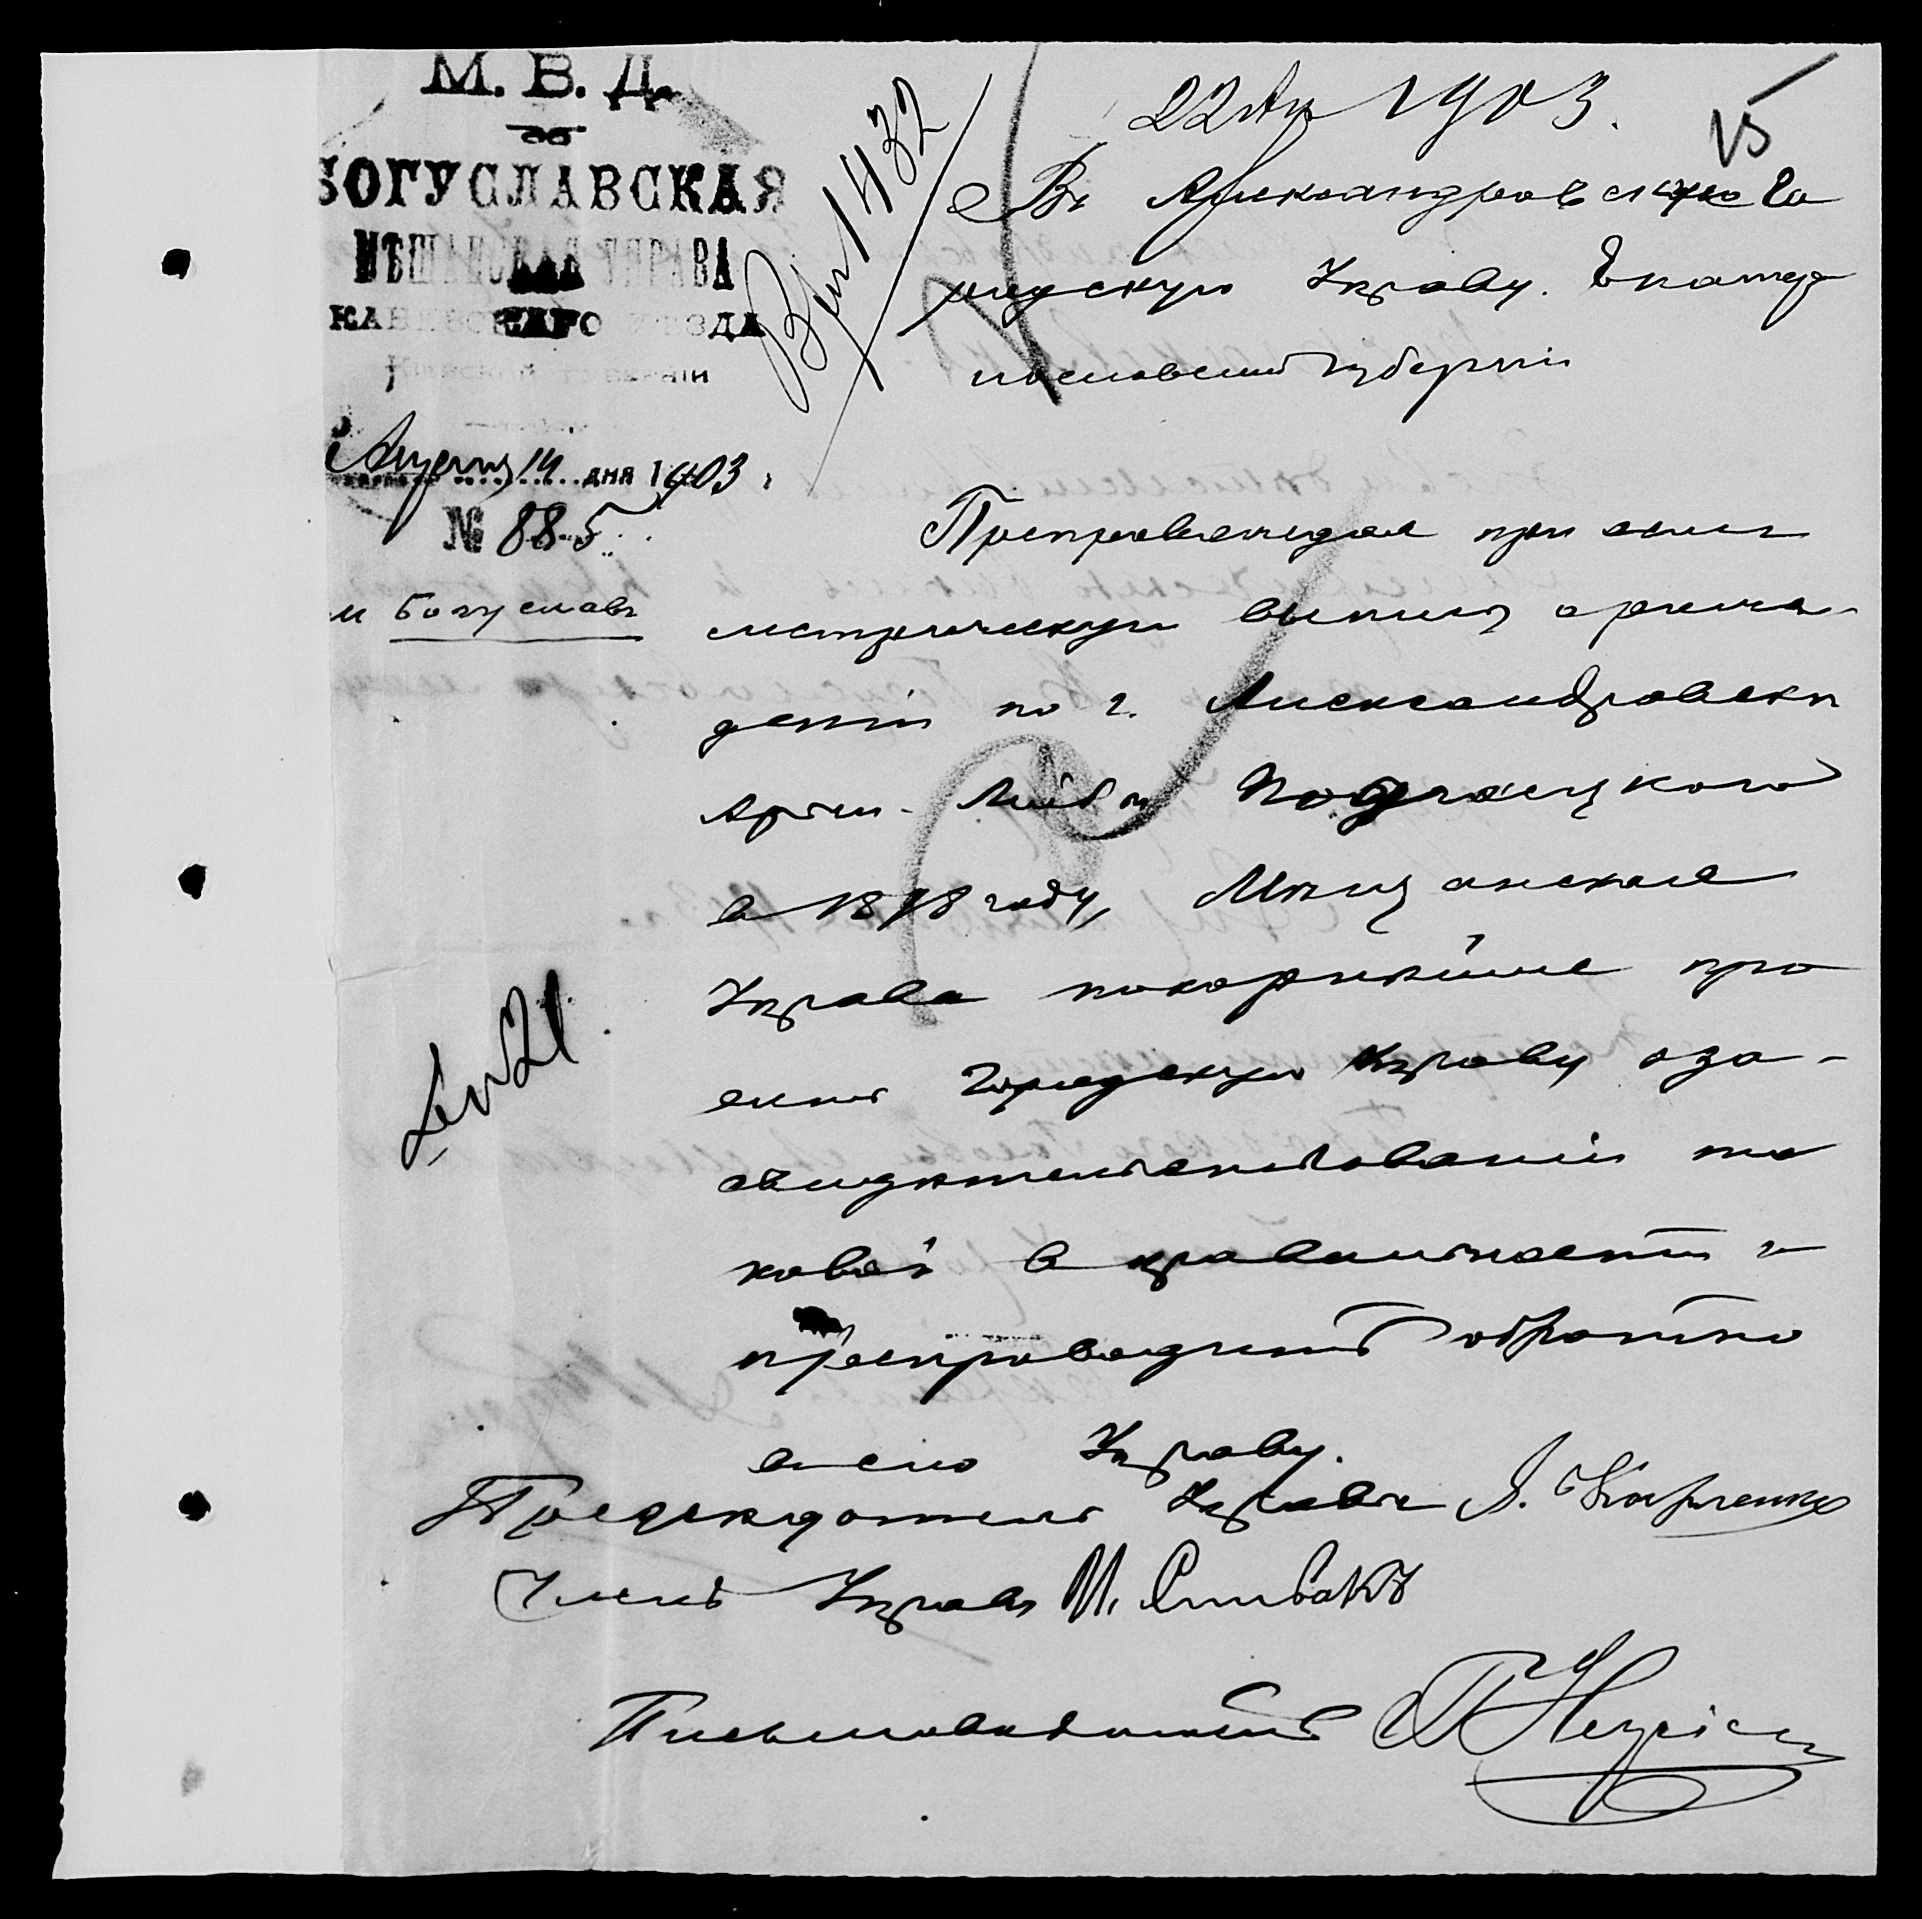 М. В. Д.
БОГУСЛАВСКАЯ
МѢЩАНСКАЯ УПРАВА
КАНЕВСКАГО УѢЗДА
КІЕВСКОЙ ГУБЕРНІИ
Апреля 14 дня 1903 г
№ 885
м Богуславъ
Вх 1432
22 Ап 1903.
15
Въ Александровскую Го
родскую Управу. Екатер
инославской губерніи
Препровождая при семъ
метрическую выпись о рожде-
деніи по г. Александровску
Арон-Лейбы
в 1878 году, Мѣщанская
Управа покорнѣйше про
ситъ Городскую Управу о за-
свидѣтельствованіи та
ковой в правильности и
препроводить обратно
в сію Управу.
Предсѣдатель Управы
Членъ Управы И. Спивакъ
Письмоводитель